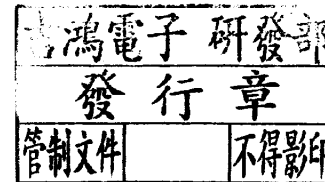 鴻電子 研發部
發行章
管制文件 不得影印